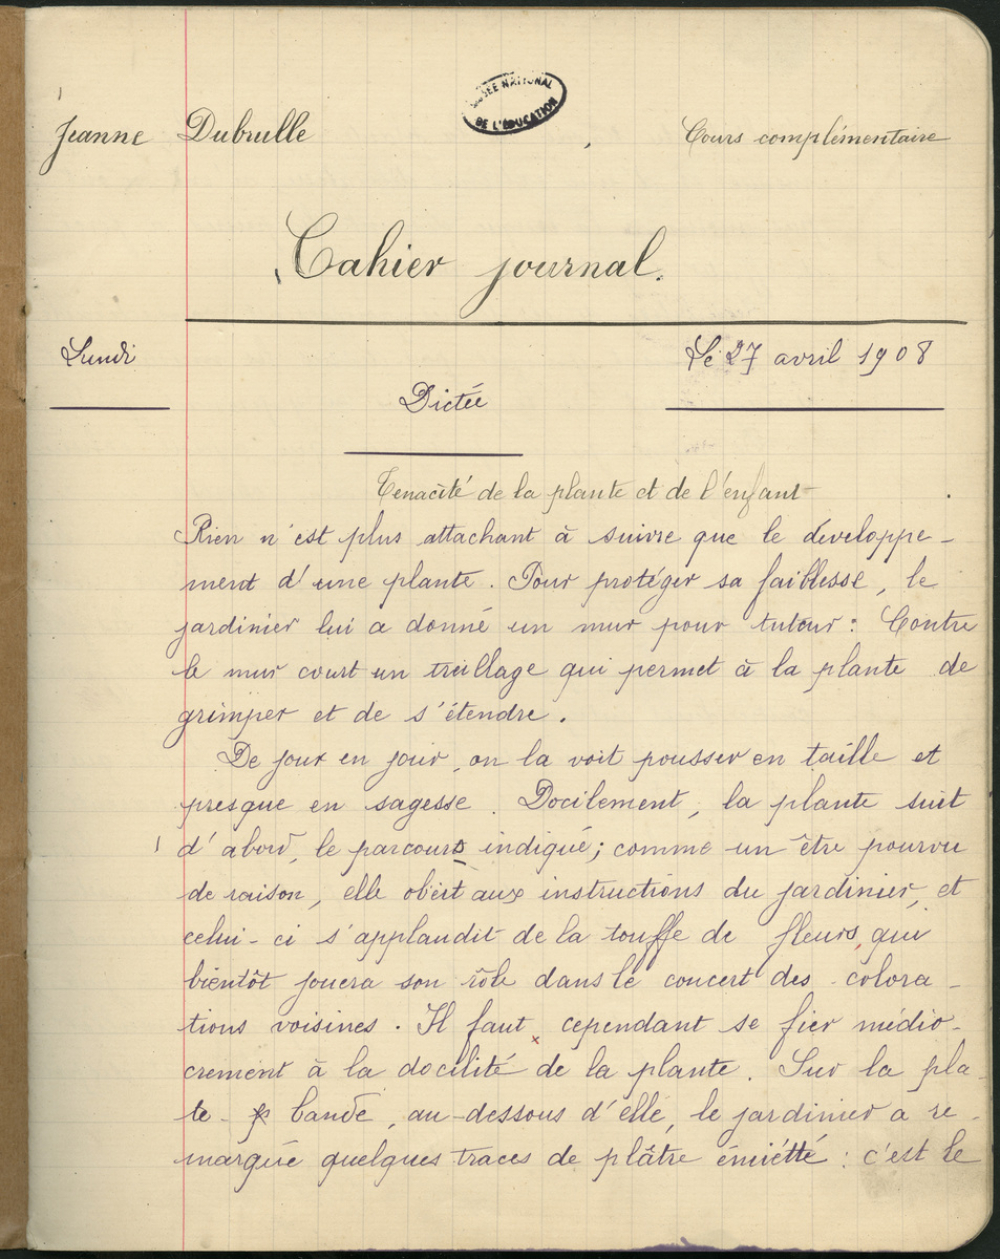 MUSÉE NATIONAL
DE L'ÉDUCATION
Jeanne Dubrulle Cours complémentaire
Cahier journal.
Lundi Le 27 avril 1908
Dictée
Tenacité de la plante et de l'enfant
Rien n'est plus attachant à suivre que le développe-
ment d'une plante. Pour protéger sa faiblesse, le
jardinier lui a donné un mur pour tuteur : Contre
le mur court un treillage qui permet à la plante de
grimper et de s'étendre.
De jour en jour, on la voit pousser en taille et
presque en sagesse. Docilement, la plante suit
d'abord, le parcours indiqué ; comme un être pourvu
de raison, elle obéit aux instructions du jardinier, et
celui-ci s'applaudit de la touffe de fleurs, qui
bientôt jouera son rôle dans le concert des colora-
tions voisines. Il faut cependant se fier médio-
crement à la docilité de la plante. Sur la pla-
te-bande, au-dessous d'elle, le jardinier a re-
marqué quelques traces de plâtre émietté : c'est le